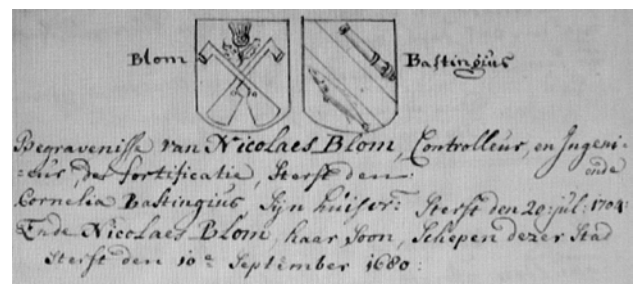 Blom
Bastingius
Begravenisse van Nicolaes Blom, Controlleur, en Ingeni-
=eur, der fortificatie, Sterft den
ende
Cornelia Bastingius Sijn huisvr: Sterft den 20: jul: 1704:
Ende Nicolaes Blom, haar Soon, Schepen dezer Stad
Sterft den 10e September 1680: